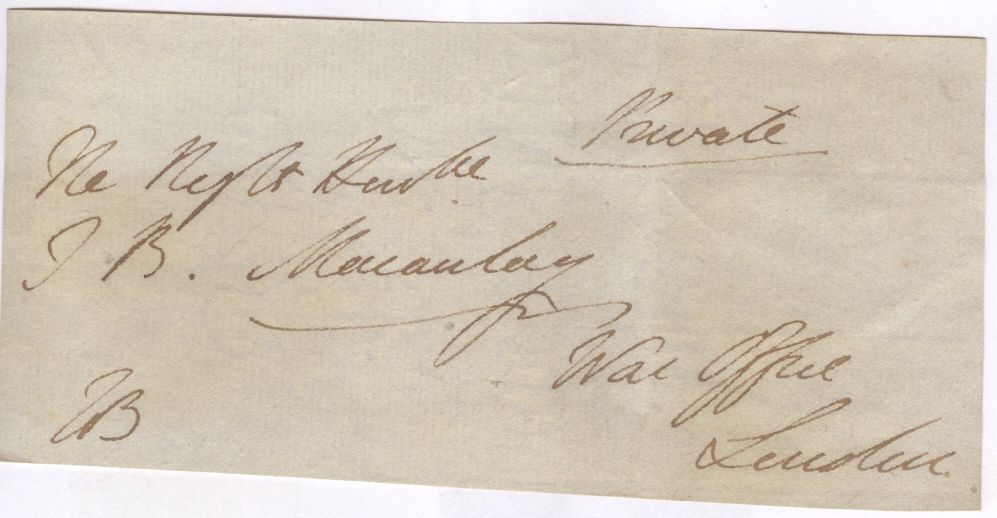 Private
The Right Honble
T B. Macaulay
War Office
London